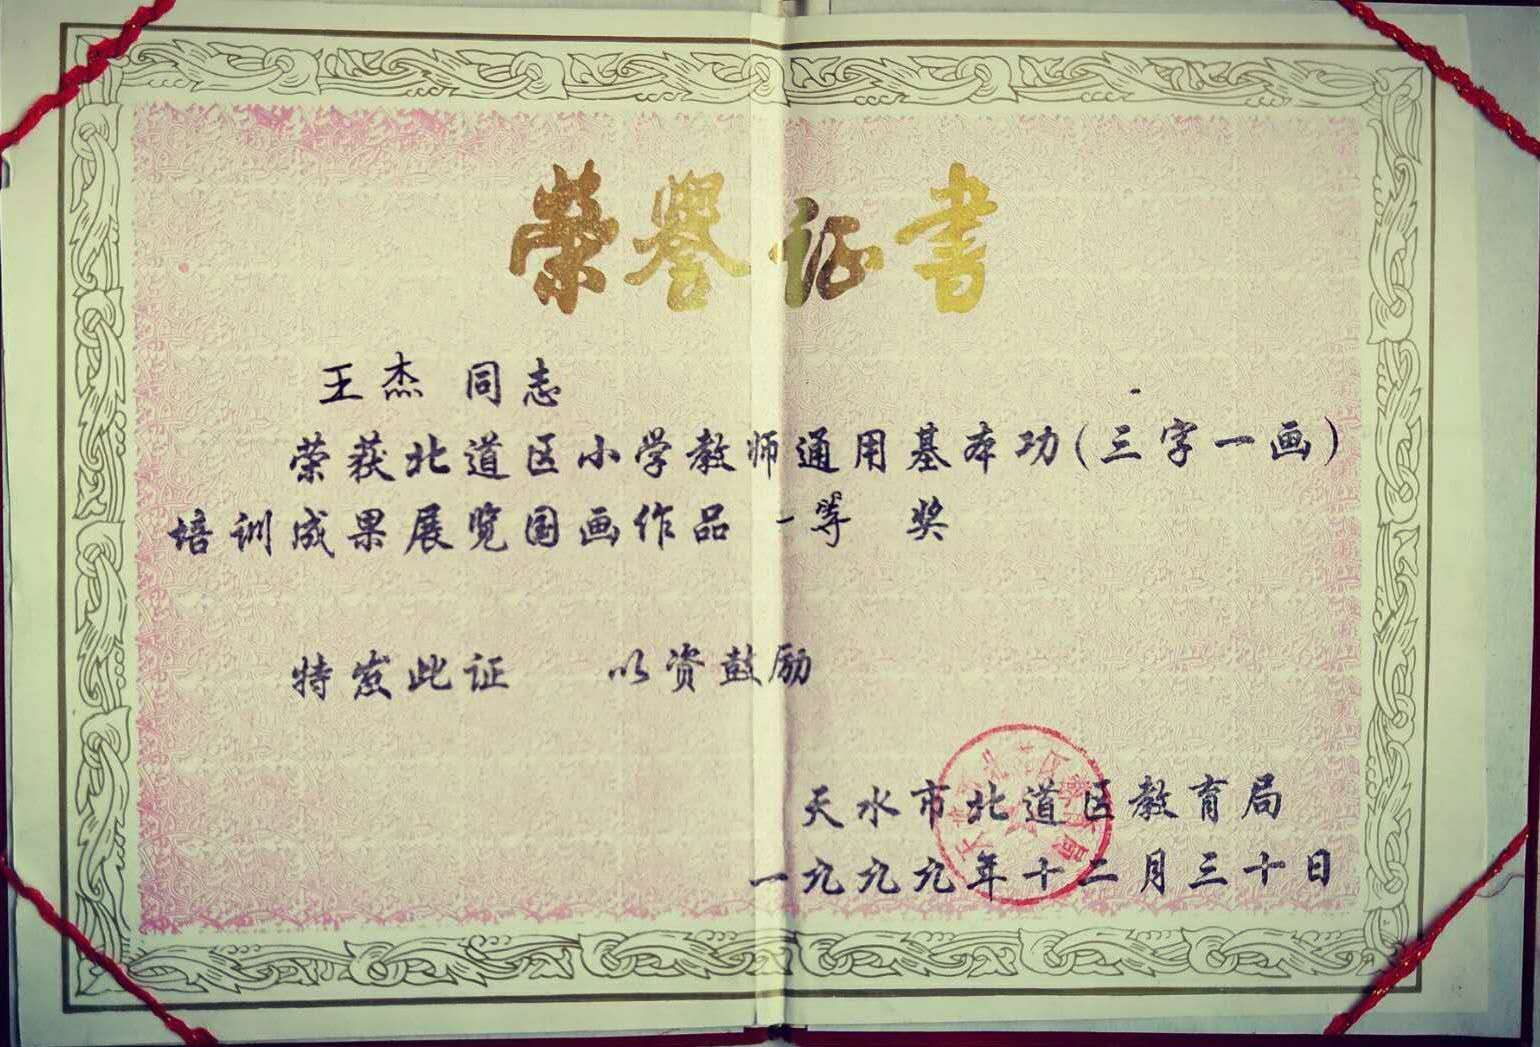 荣誉证书
王杰 同志
荣获北道区小学教师通用基本功(三字一画)
培训成果展览国画作品 一等 奖
特发此证 以资鼓励
天水市北道区教育局
一九九九年十二月三十日